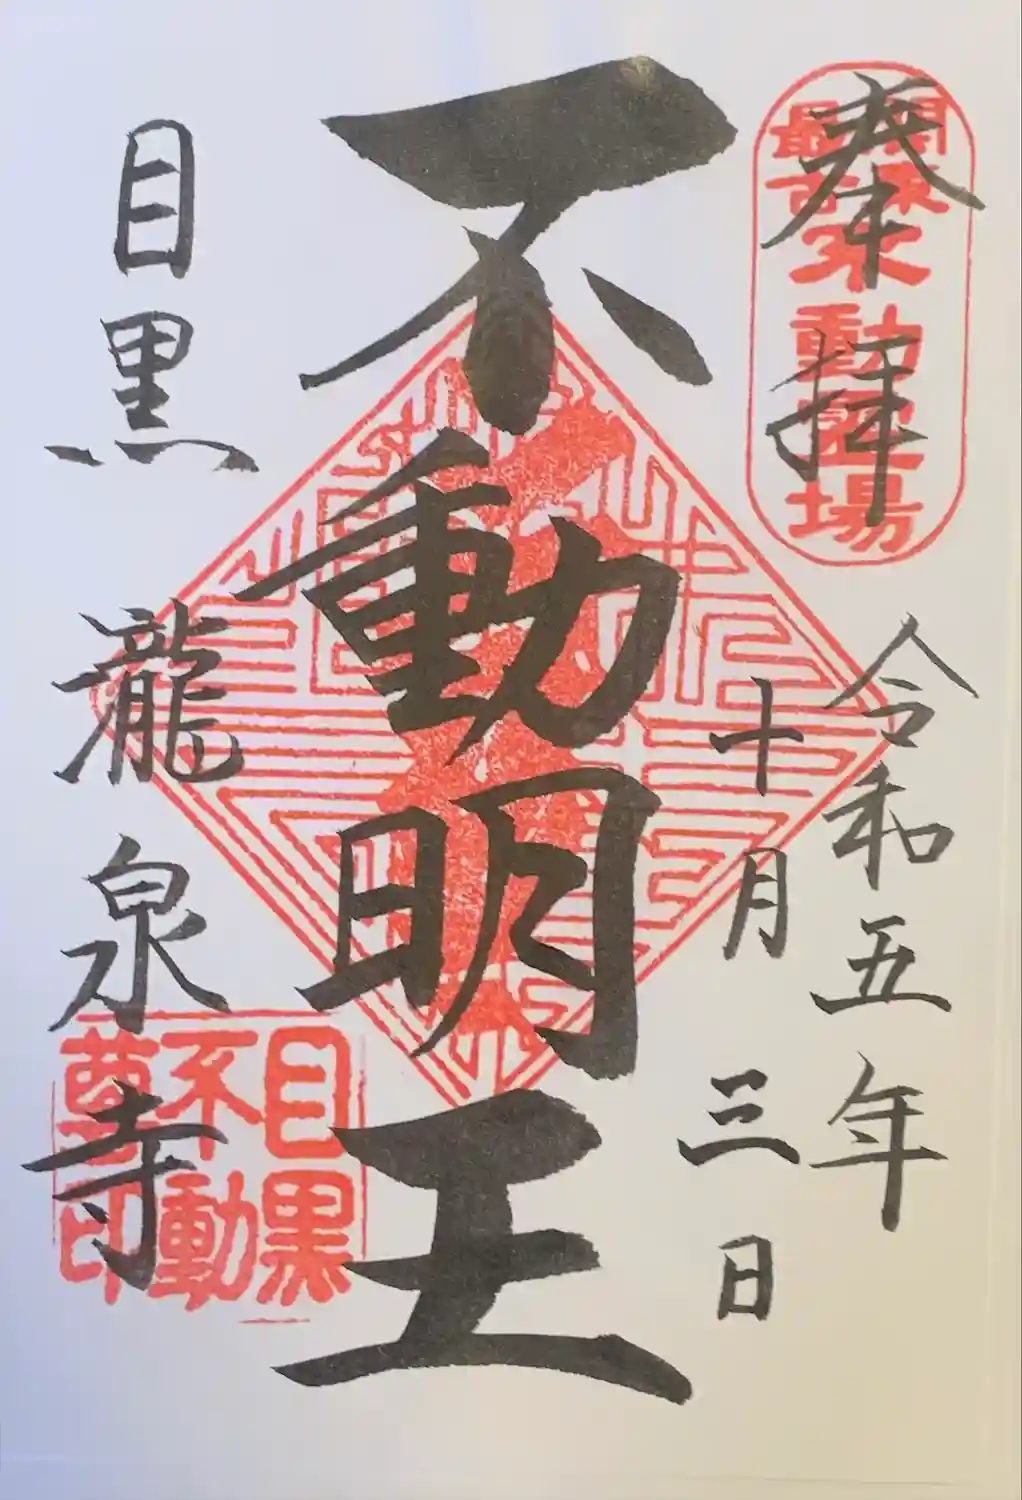 奉拝
関東最古不動霊場
令和五年
十月三日
不動明王
目黒 瀧泉寺
目黒不動尊印